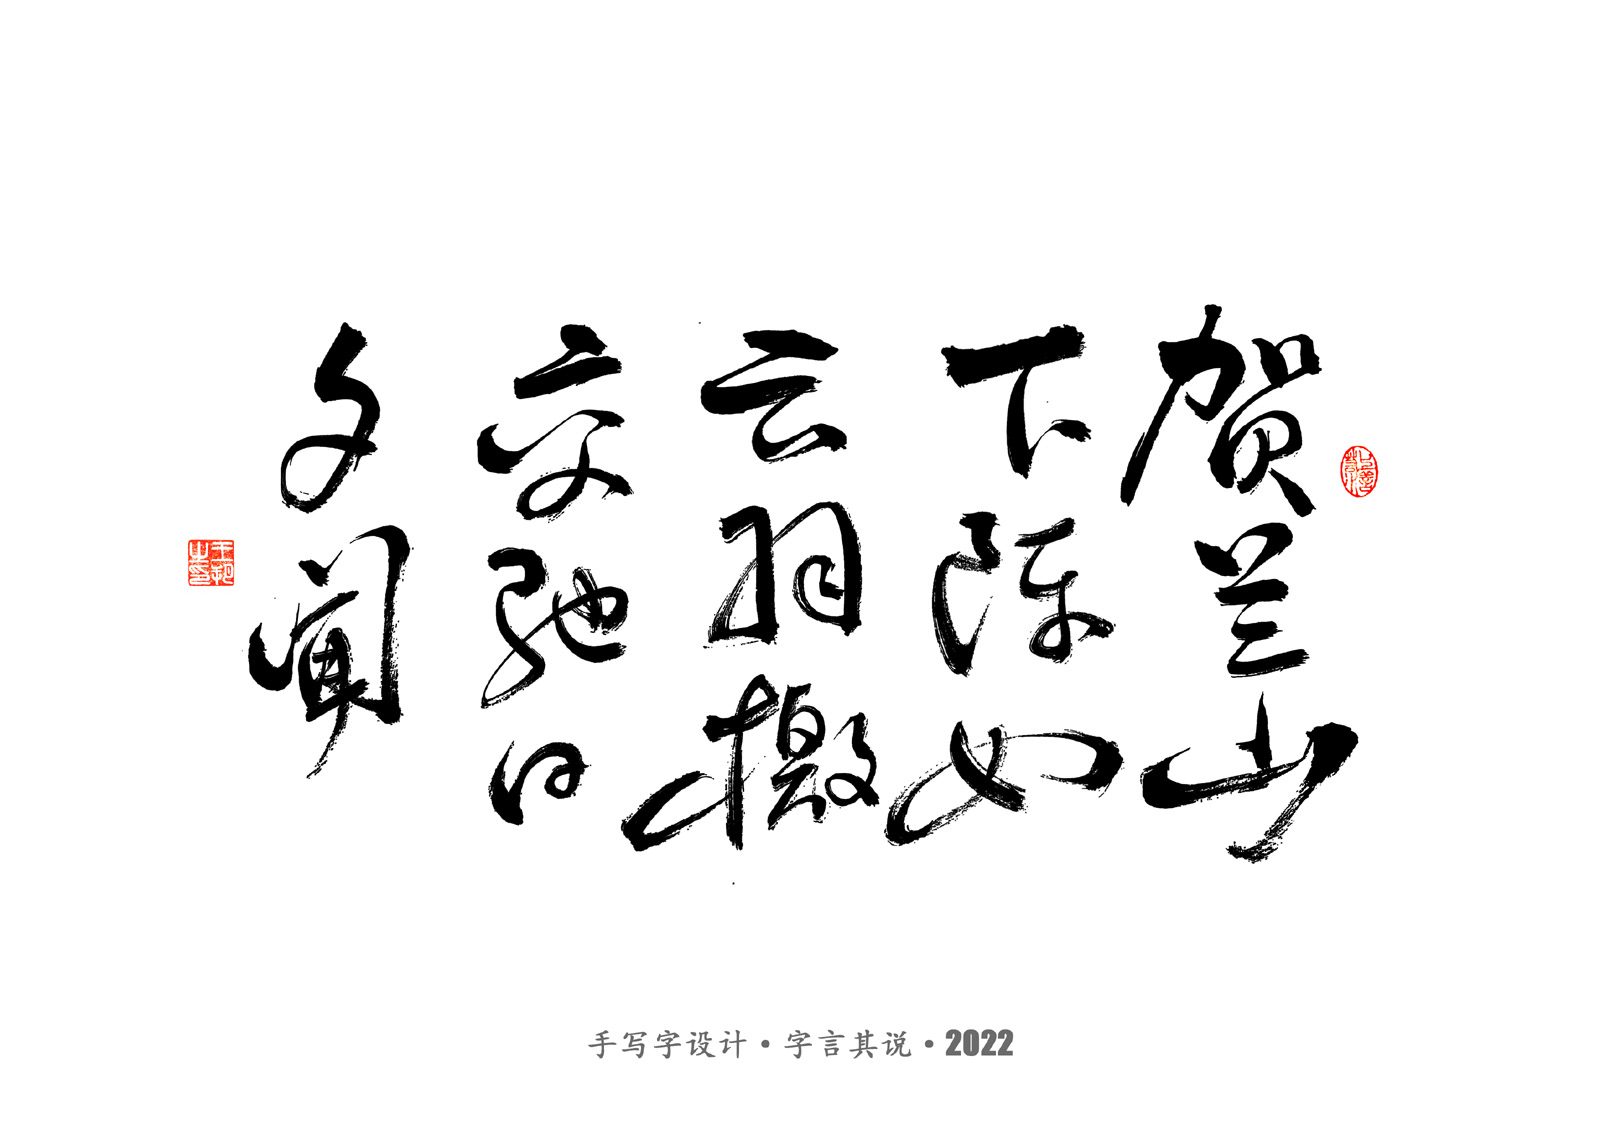 贺兰山
下阵如
云羽檄
交驰日
夕闻
手写字设计·字言其说·2022